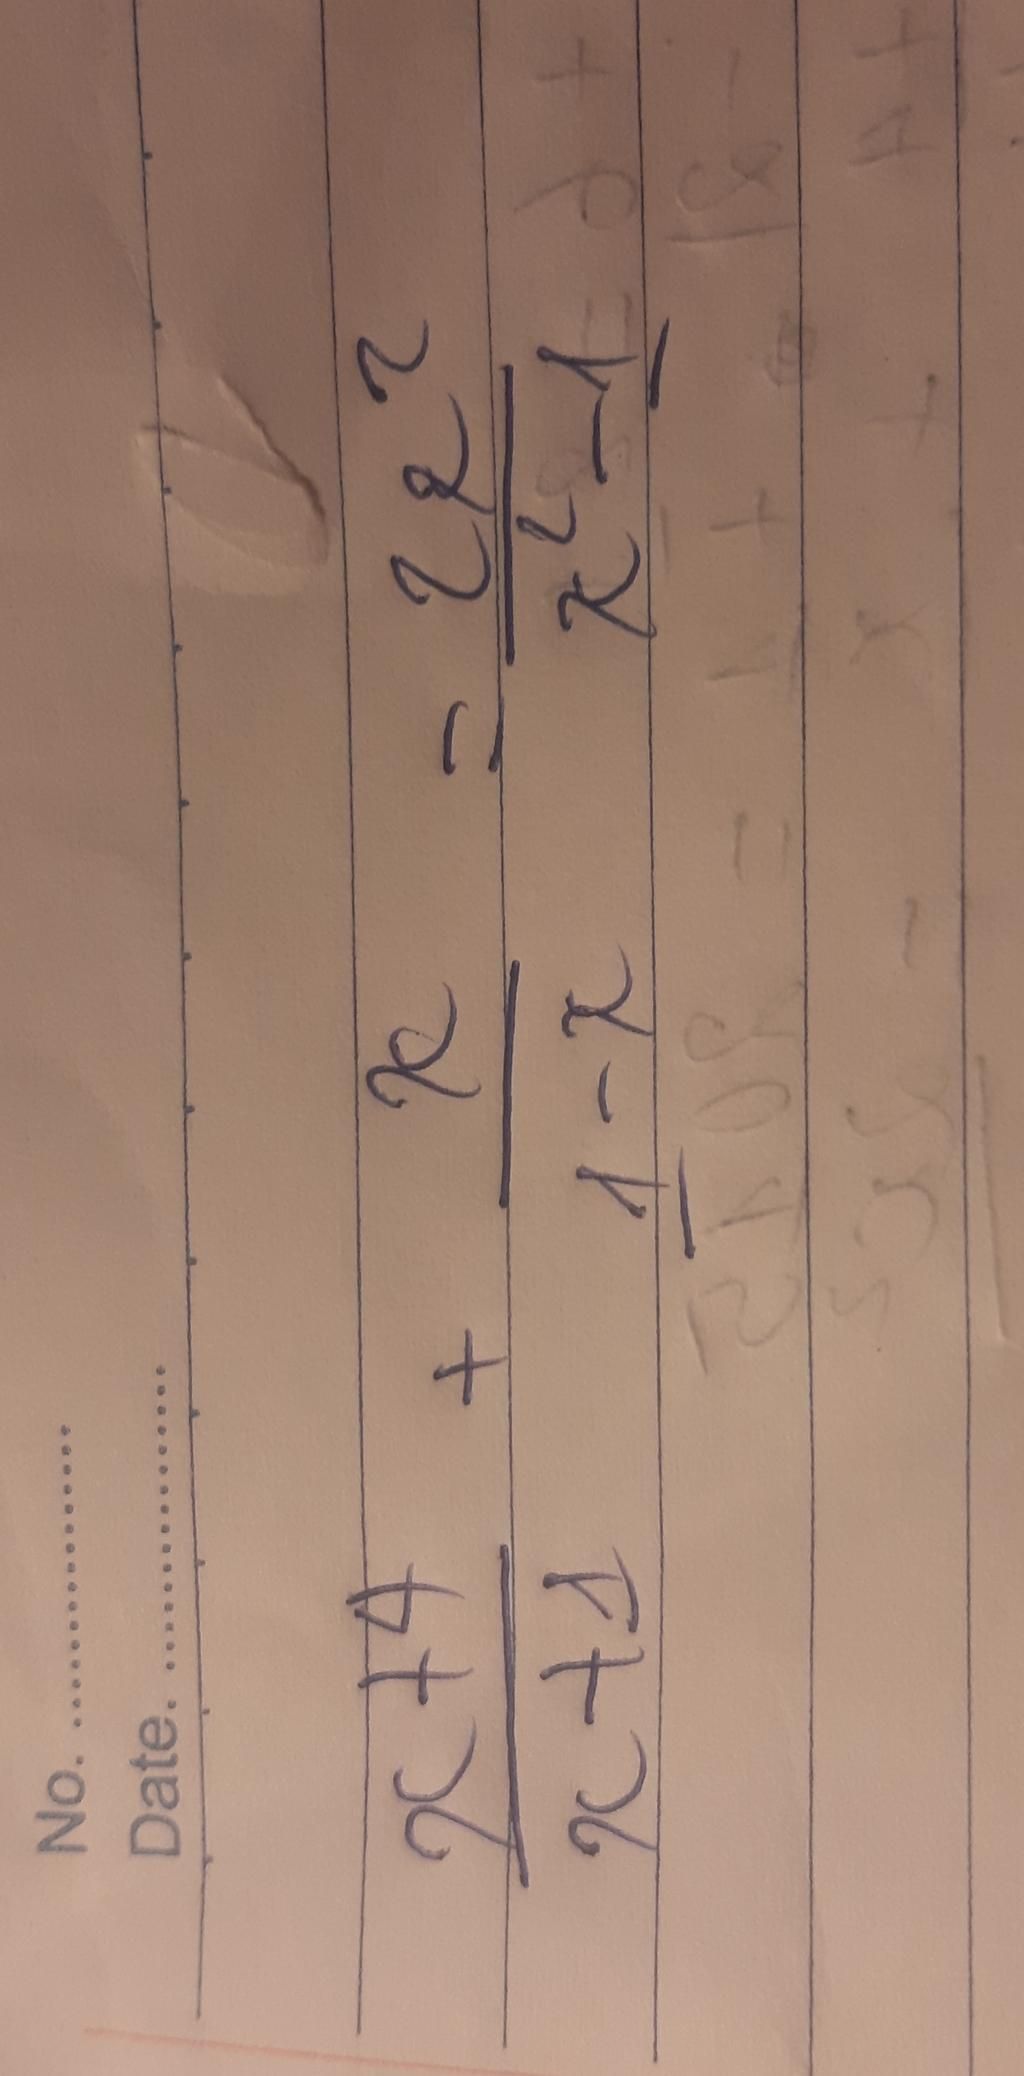 No. ....................
Date. ....................
x+4/x+1 + x/1-x = 2x²/x²-1